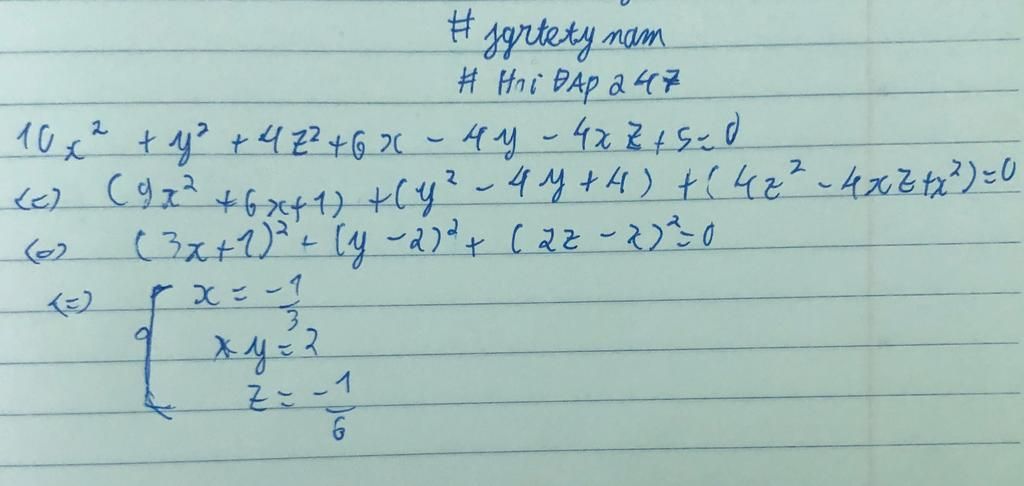 # jgrtety nam
# Hỏi ĐAp 247
10x² + y² + 4z² + 6x - 4y - 4xz + 5 = 0
<=> (9x² + 6x + 1) + (y² - 4y + 4) + (4z² - 4xz + x²) = 0
<=> (3x + 1)² + (y - 2)² + (2z - x)² = 0
<=> { x = -1/3
y = 2
z = -1/6